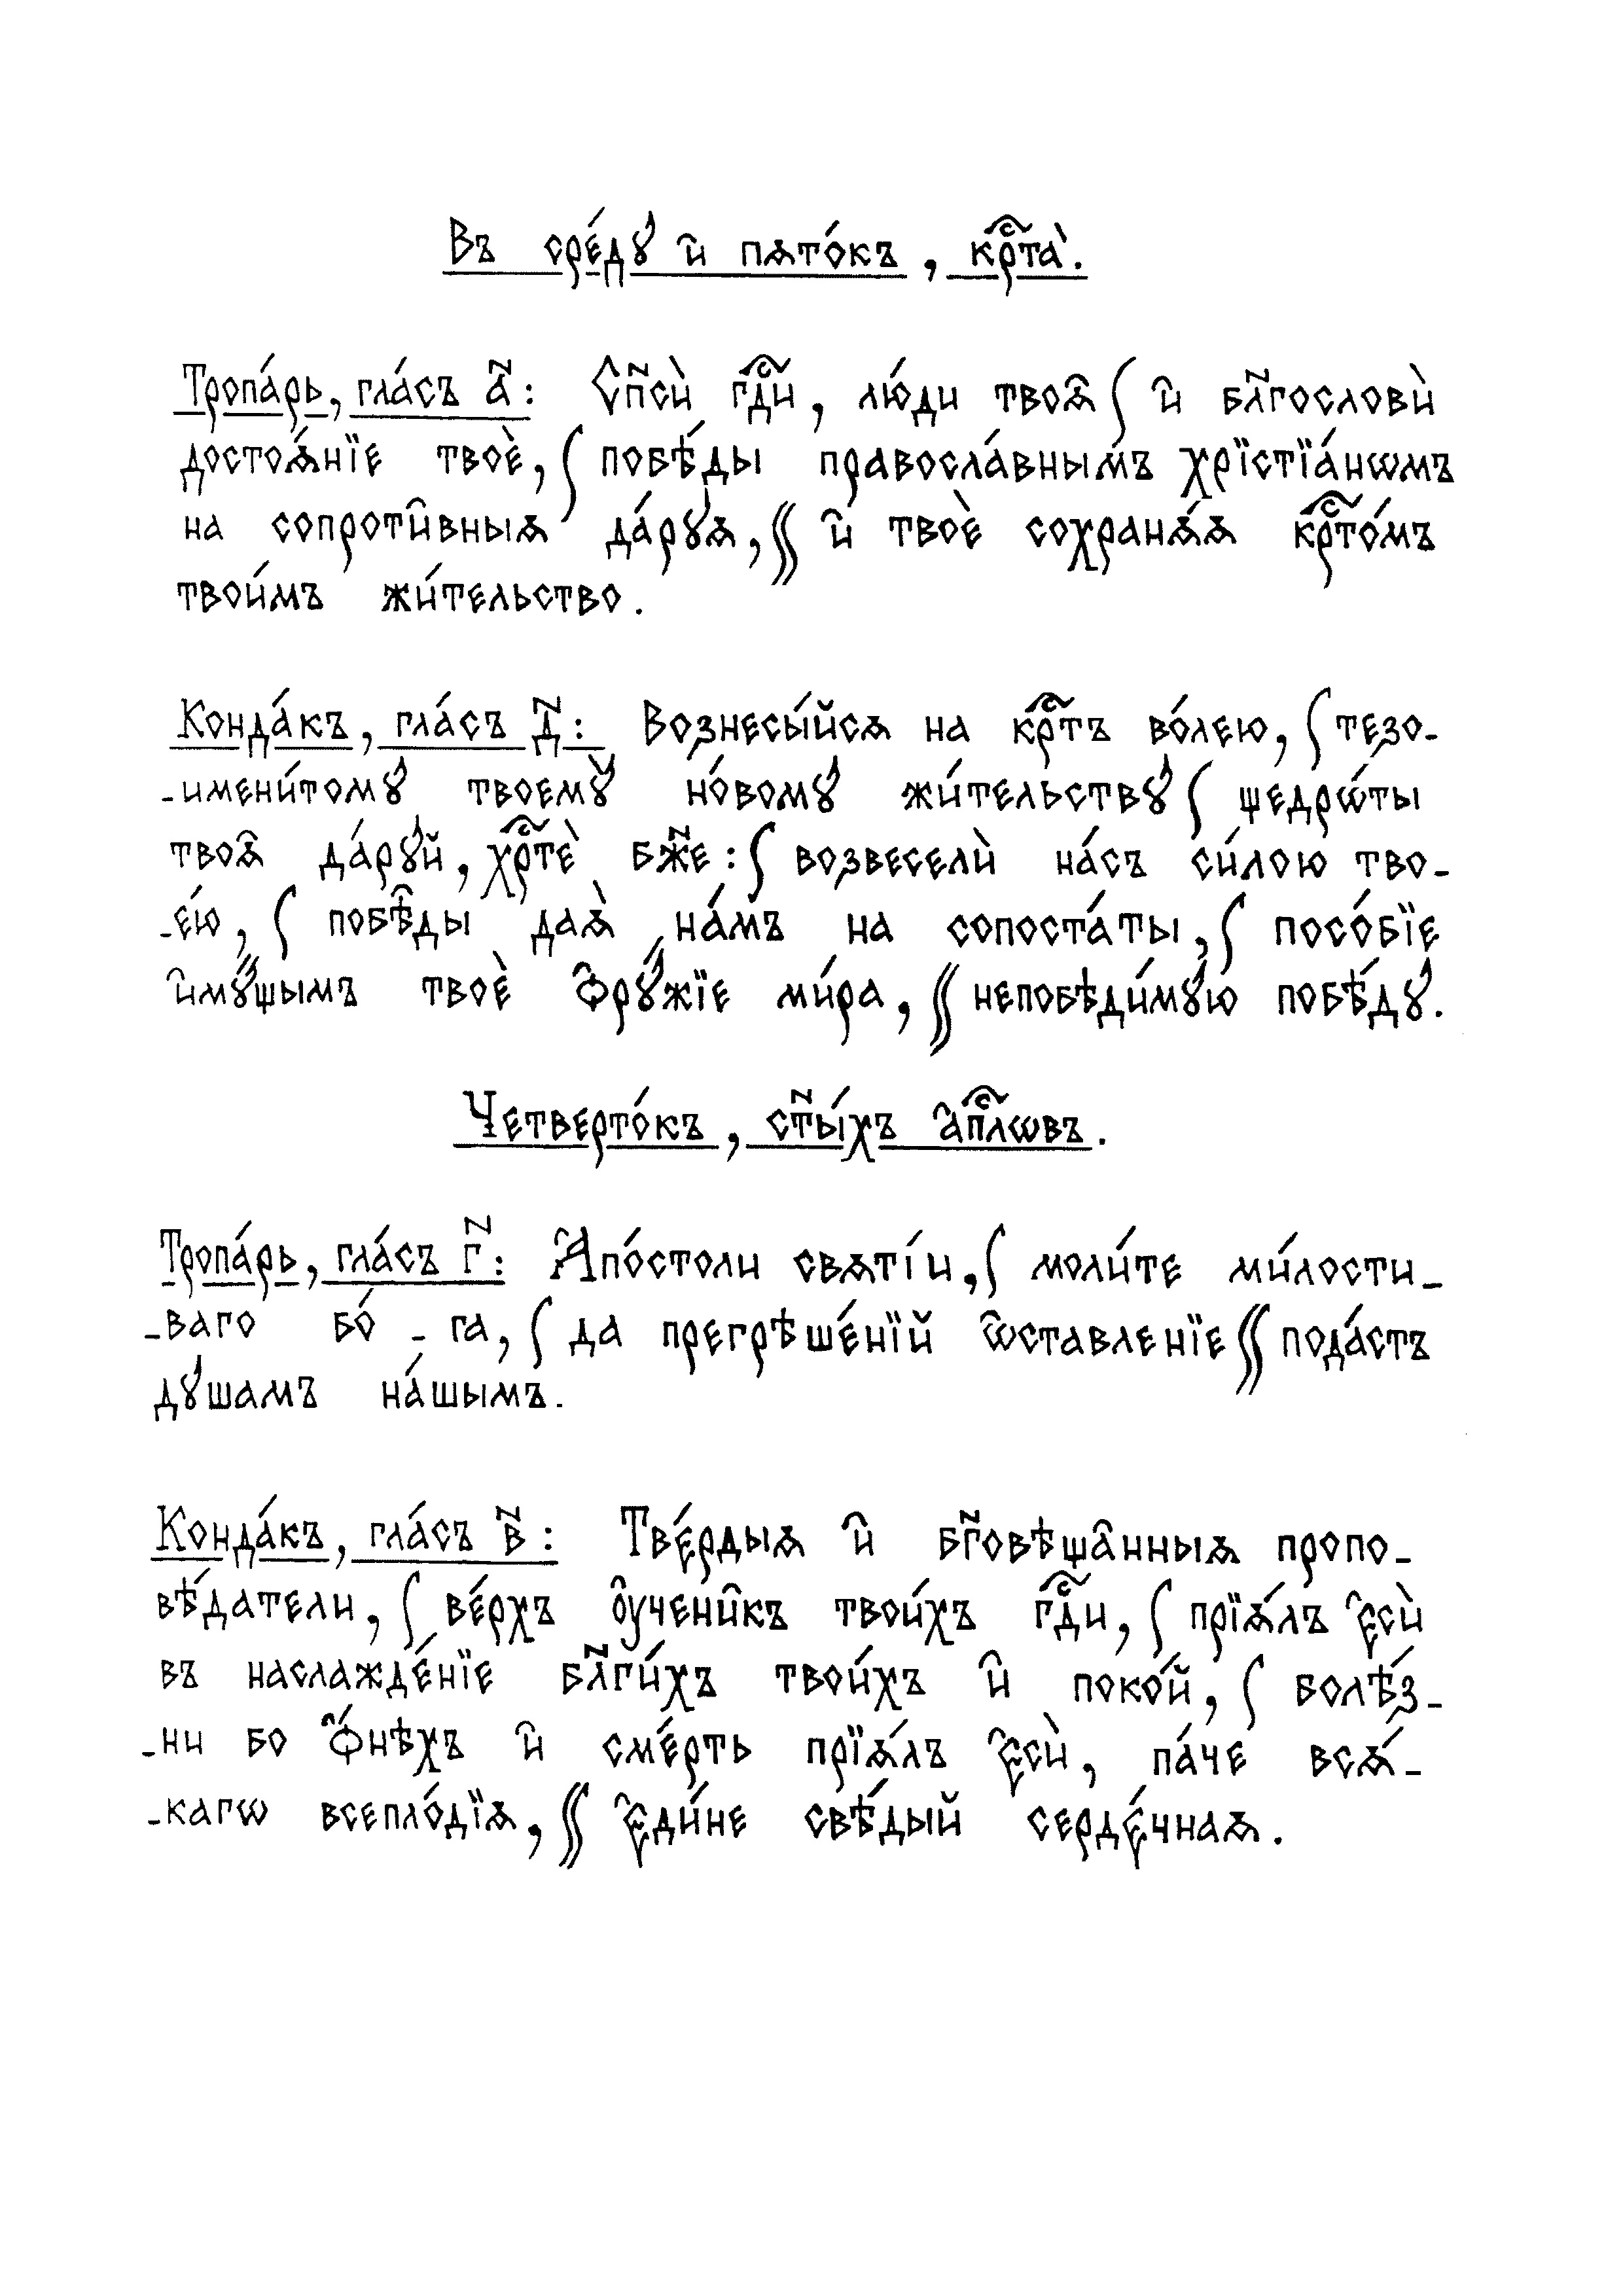 Въ сре́дꙋ и҆ пѧто́къ, крⷭ҇та̀.
Тропа́рь, гла́съ а҃: Сп҃сѝ гдⷭ҇и, лю́ди твоѧ̑ ∫ и҆ бл҃гословѝ
достоѧ́нїе твоѐ, ∫ побѣ́ды правосла́внымъ хрїстїа́нѡмъ
на сопроти̑вныѧ да́рꙋѧ, ∫∫ и҆ твоѐ сохранѧ́ѧ крⷭ҇то́мъ
твои́мъ жи́тельство.
Конда́къ, гла́съ д҃: Вознесы́йсѧ на крⷭ҇тъ во́лею, ∫ тезо-
-имени́томꙋ твоемꙋ̀ но́вомꙋ жи́тельствꙋ ∫ щедрѡ́ты
твоѧ̑ да́рꙋй, хрⷭ҇тѐ бж҃е: ∫ возвеселѝ на́съ си́лою тво-
-е́ю, ∫ побѣ̑ды даѧ̀ на́мъ на сопоста́ты, ∫ посо́бїе
и҆мꙋ́щымъ твоѐ ѻ҆рꙋ́жїе ми́ра, ∫∫ непобѣди́мꙋю побѣ́дꙋ.
Четверто́къ, ст҃ы́хъ а҆пⷭ҇лѡвъ.
Тропа́рь, гла́съ г҃: А҆по́столи свѧті́и, ∫ моли́те ми́лости-
-ваго бо́ - га, ∫ да прегрѣше́нїй ѡ҆ставленїе ∫∫ пода́стъ
дꙋ́шамъ на́шымъ.
Конда́къ, гла́съ в҃: Тве́рдыѧ и҆ бг҃овѣща̑нныѧ пропо-
вѣ́датели, ∫ ве́рхъ ᲂу҆чени̑къ твои́хъ гдⷭ҇и, ∫ прїѧ́лъ є҆сѝ
въ наслажде́нїе бл҃ги́хъ твои́хъ и҆ поко́й, ∫ болѣ́з-
-ни бо ѻ҆́нѣхъ и҆ сме́рть прїѧ́лъ є҆сѝ, па́че всѧ́-
-кагѡ всепло́дїѧ, ∫∫ є҆ди́не свѣ́дый серде́чнаѧ.